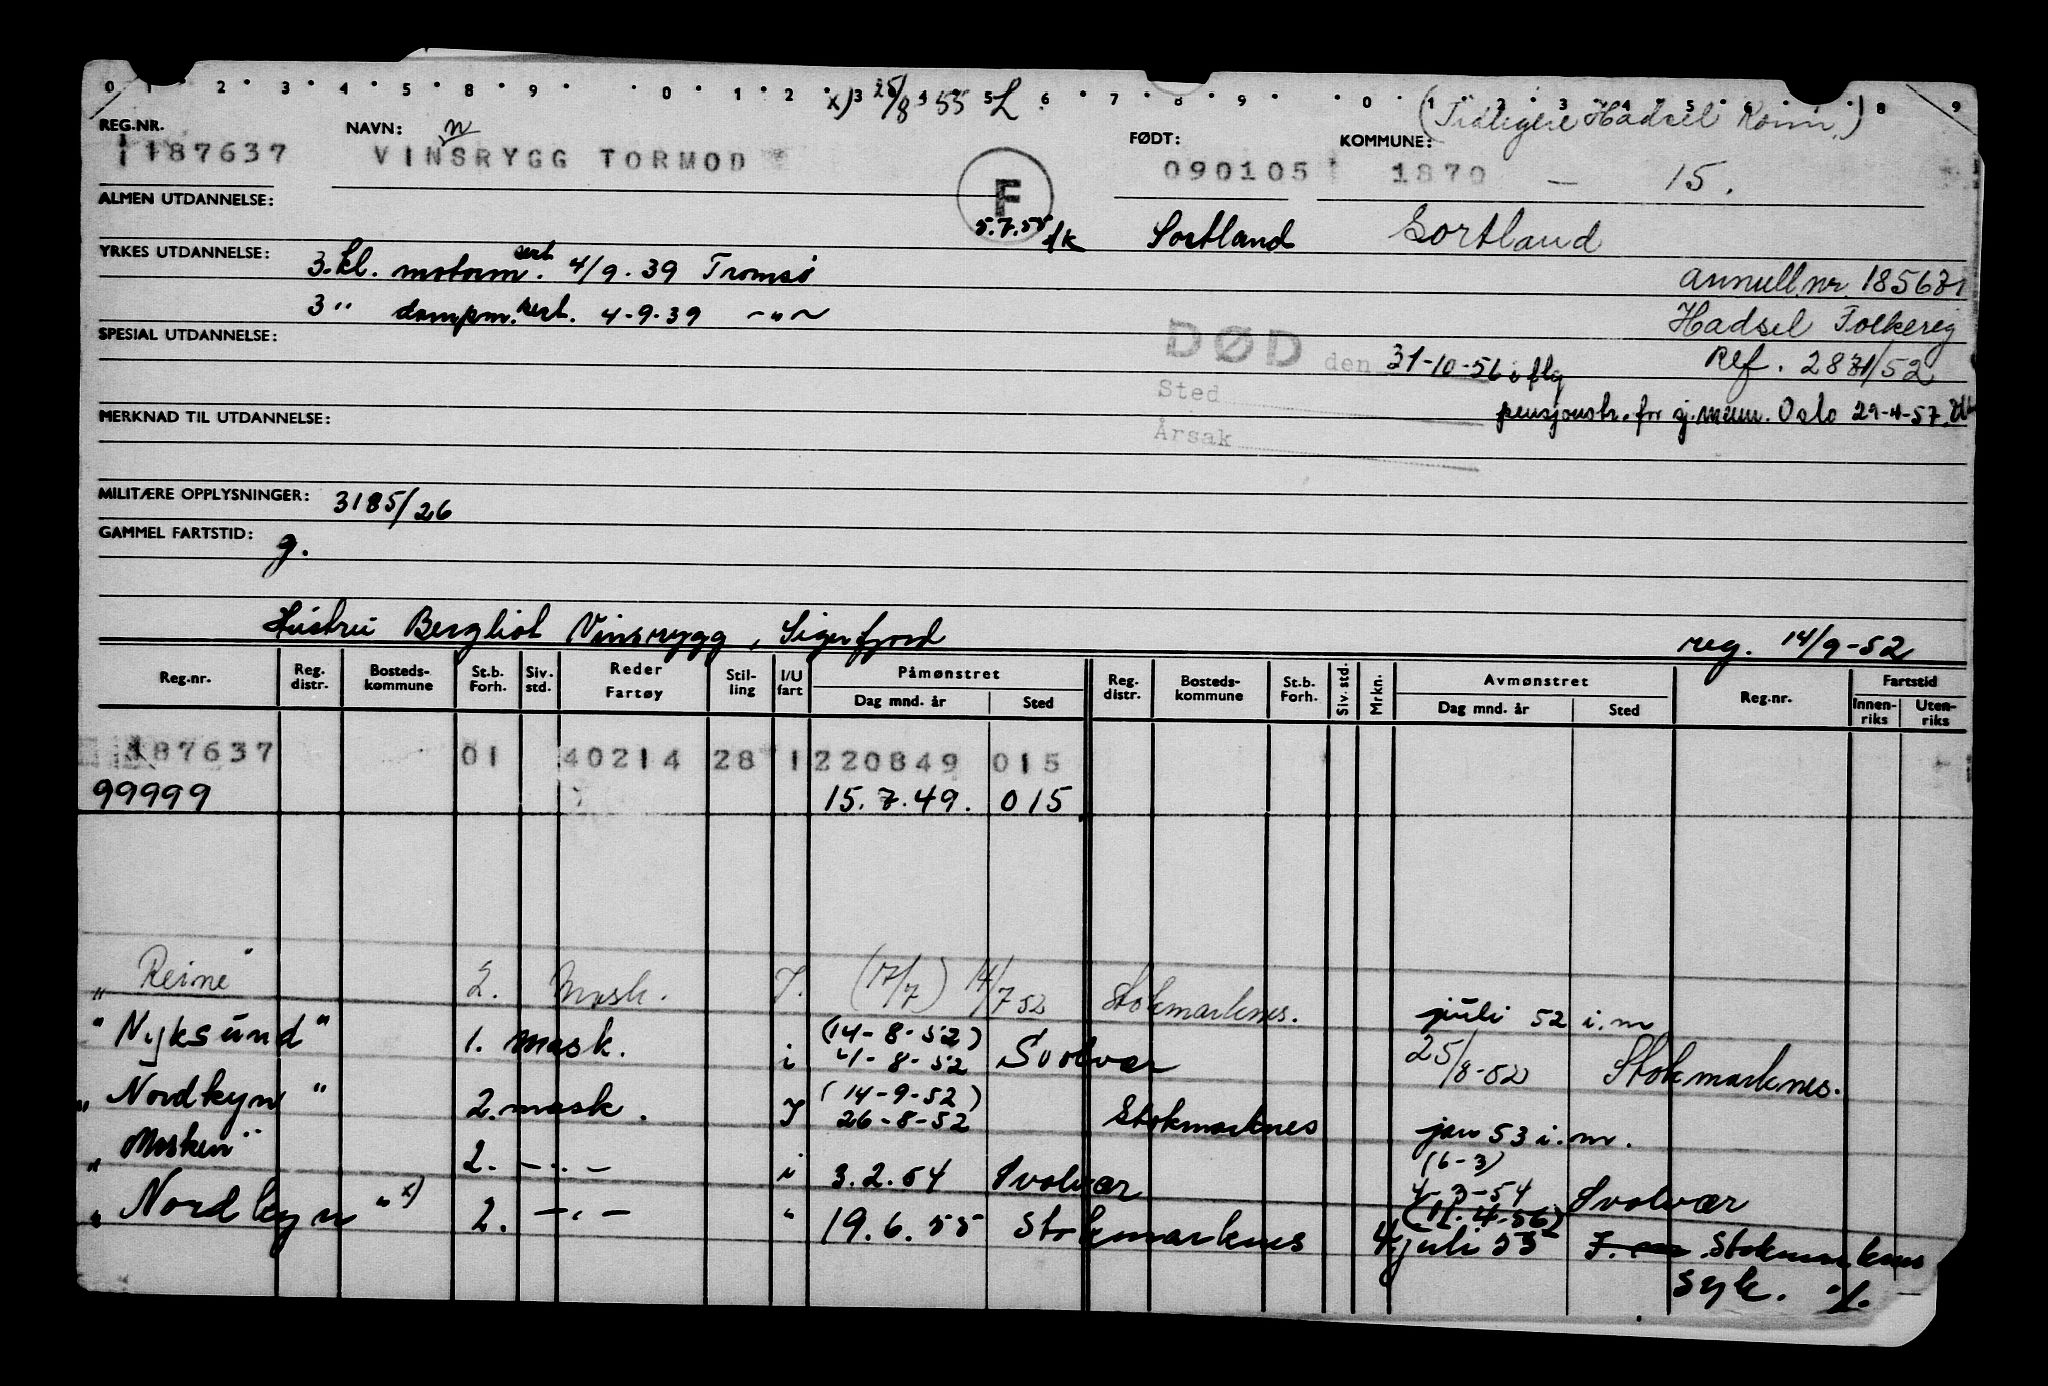 0 1 2 3 4 5 8 9 0 1 2 3 4 5 6 7 8 9 0 1 2 3 4 5 6 8 9
x) 25/8 55 L.
(Tidligere Hadsel Kom.)
REG.NR. NAVN: n FØDT: KOMMUNE:
187637 VINSRYGG TORMOD 090105 1870 – 15.
F
ALMEN UTDANNELSE:
5.7.55 Sortland Sortland
YRKES UTDANNELSE: 3.kl. motorm sert. 4/9.39 Tromsø
Annull.nr. 185671
3 " dampm. sert. 4-9-39 –"–
Hadsel Folkereg
SPESIAL UTDANNELSE:
DØD den 31-10-56 i flg
Ref. 2871/52
Sted
pensjonstr. for sjømenn. Oslo 29-4-57.
MERKNAD TIL UTDANNELSE:
Årsak
MILITÆRE OPPLYSNINGER: 3185/26
GAMMEL FARTSTID: g.
Hustru Bergliot Vinsrygg, Sigerfjord
reg. 14/9-52
Reg.nr. Reg. distr. Bosteds- kommune St.b. Forh. Siv. std. Reder Fartøy Stil- ling I/U fart Påmønstret Dag mnd. år Sted Reg. distr. Bosteds- kommune St.b. Forh. Siv. std. Mrkn. Avmønstret Dag mnd. år Sted Reg.nr. Fartstid Innen- riks Uten- riks
187637 01 40214 28 1 220849 015
99999 15.7.49. 015
"Reine" 2. Mask. I. (17/7) 14/7 52 Stokmarknes. juli 52 i.m
"Nyksund" 1. mask. i (14-8-52) 4-8-52 Svolvær 25/8-52 Stokmarknes.
"Nordkyn" 2. mask. I (14-9-52) 26-8-52 Stokmarknes jan 53 i.m.
"Mosken" 2. –"– i 3.2.54 Svolvær (6-3) 4-3-54 Svolvær
"Nordkyn" x) 2. –"– " 19.6.55 Stokmarknes (11.4-56) 4.juli 55 Stokmarknes
syk. ./.